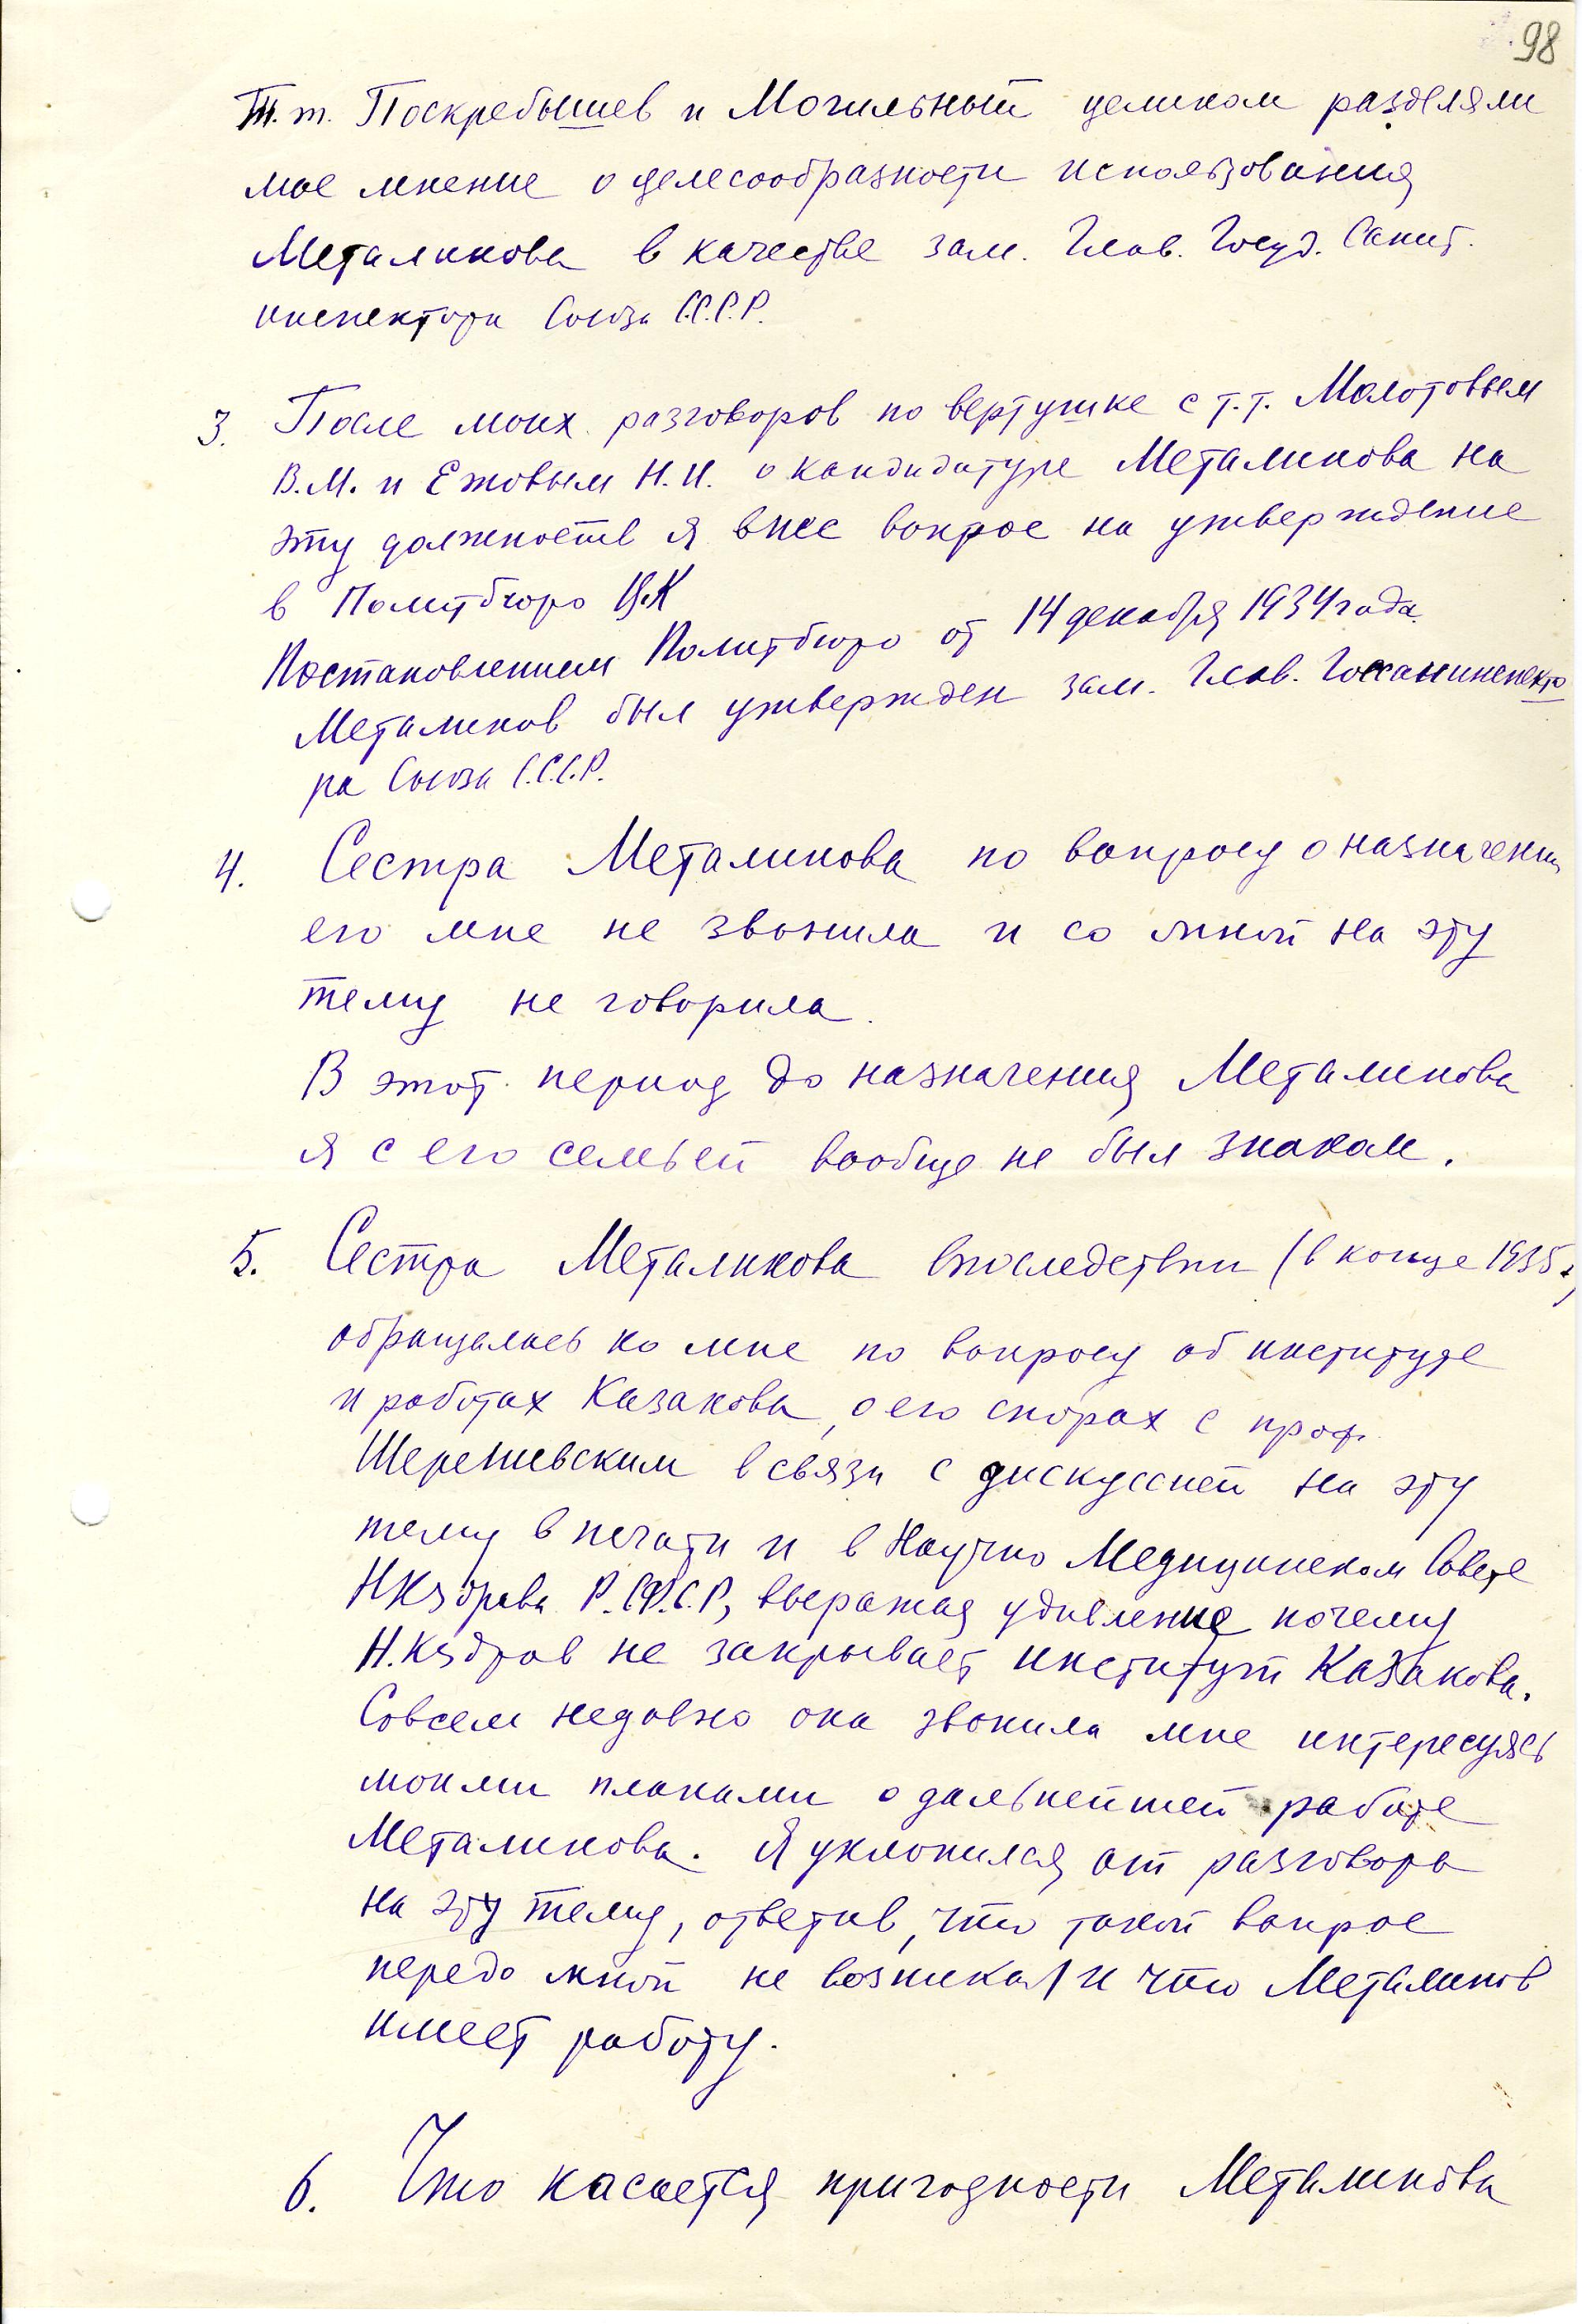 98
Т.т. Поскребышев и Могильный целиком разделяли
мое мнение о целесообразности использования
Металикова в качестве зам. Глав. Госуд. Санит.
инспектора Союза С.С.С.Р.
3. После моих разговоров по вертушке с т.т. Молотовым
В.М. и Ежовым Н.И. о кандидатуре Металикова на
эту должность я внес вопрос на утверждение
в Политбюро ЦК
Постановлением Политбюро от 14 декабря 1934 года
Металиков был утвержден зам. Глав. Госсанинспекто
ра Союза С.С.С.Р.
4. Сестра Металикова по вопросу о назначении
его мне не звонила и со мной на эту
тему не говорила.
В этот период до назначения Металикова
я с его семьей вообще не был знаком.
5. Сестра Металикова впоследствии (в конце 1935 г.)
обращалась ко мне по вопросу об институте
и работах Казакова, о его спорах с проф.
Шерешевским в связи с дискуссией на эту
тему в печати и в Научно Медицинском Совете
НКздрава Р.С.Ф.С.Р, выражая удивление почему
Н.Кздрав не закрывает институт Казакова.
Совсем недавно она звонила мне интересуясь
моими планами о дальнейшей работе
Металикова. Я уклонился от разговора
на эту тему, ответив, что такой вопрос
передо мной не возникал и что Металиков
имеет работу.
6. Что касается пригодности Металикова